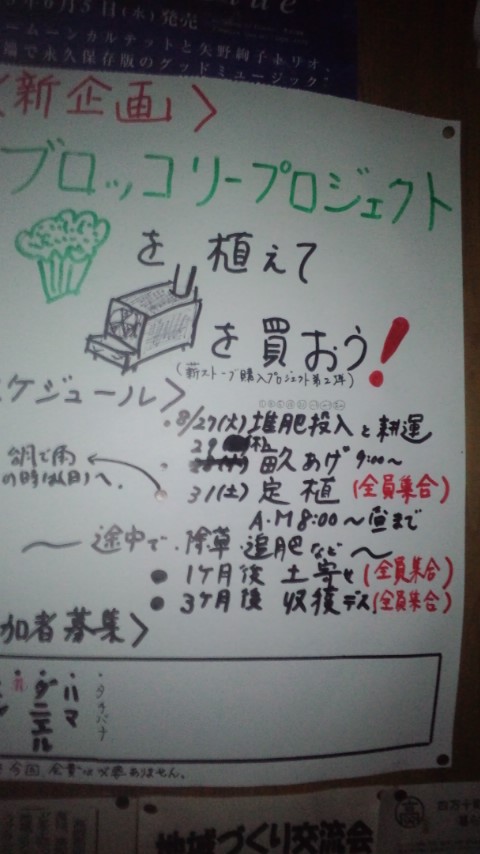 年6月5日(水)発売
ームーンカルテットと矢野絢子トリオ、
で永久保存版のグッドミュージック。
〈新企画〉
ブロッコリープロジェクト
を植えて
を買おう!
(薪ストーブ購入プロジェクト第2弾)
ケジュール〉
・8/27(火)堆肥投入と耕運
29
畝あげ 9:00〜
の時は
・31(土)定植(全員集合)
A.M 8:00〜昼まで
〜途中で、除草・追肥など〜
●1ヶ月後 土寄せ(全員集合)
●3ヶ月後 収穫デス(全員集合)
加者募集〉
・タチバナ
・ハマ
・ダニエル
今回、会費は必要ありません。
四万十
地域づくり交流会